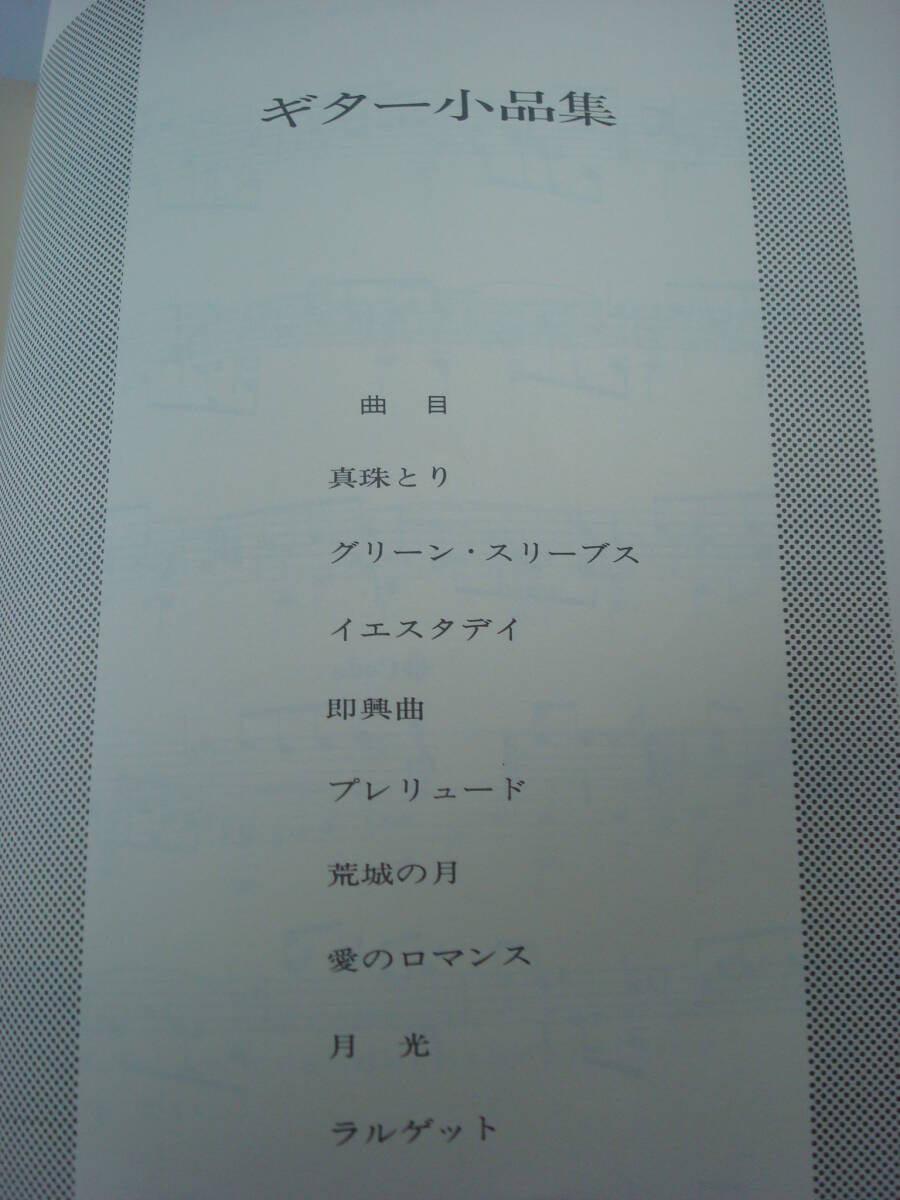 ギター小品集
曲　目
真珠とり
グリーン・スリーブス
イエスタデイ
即興曲
プレリュード
荒城の月
愛のロマンス
月　光
ラルゲット